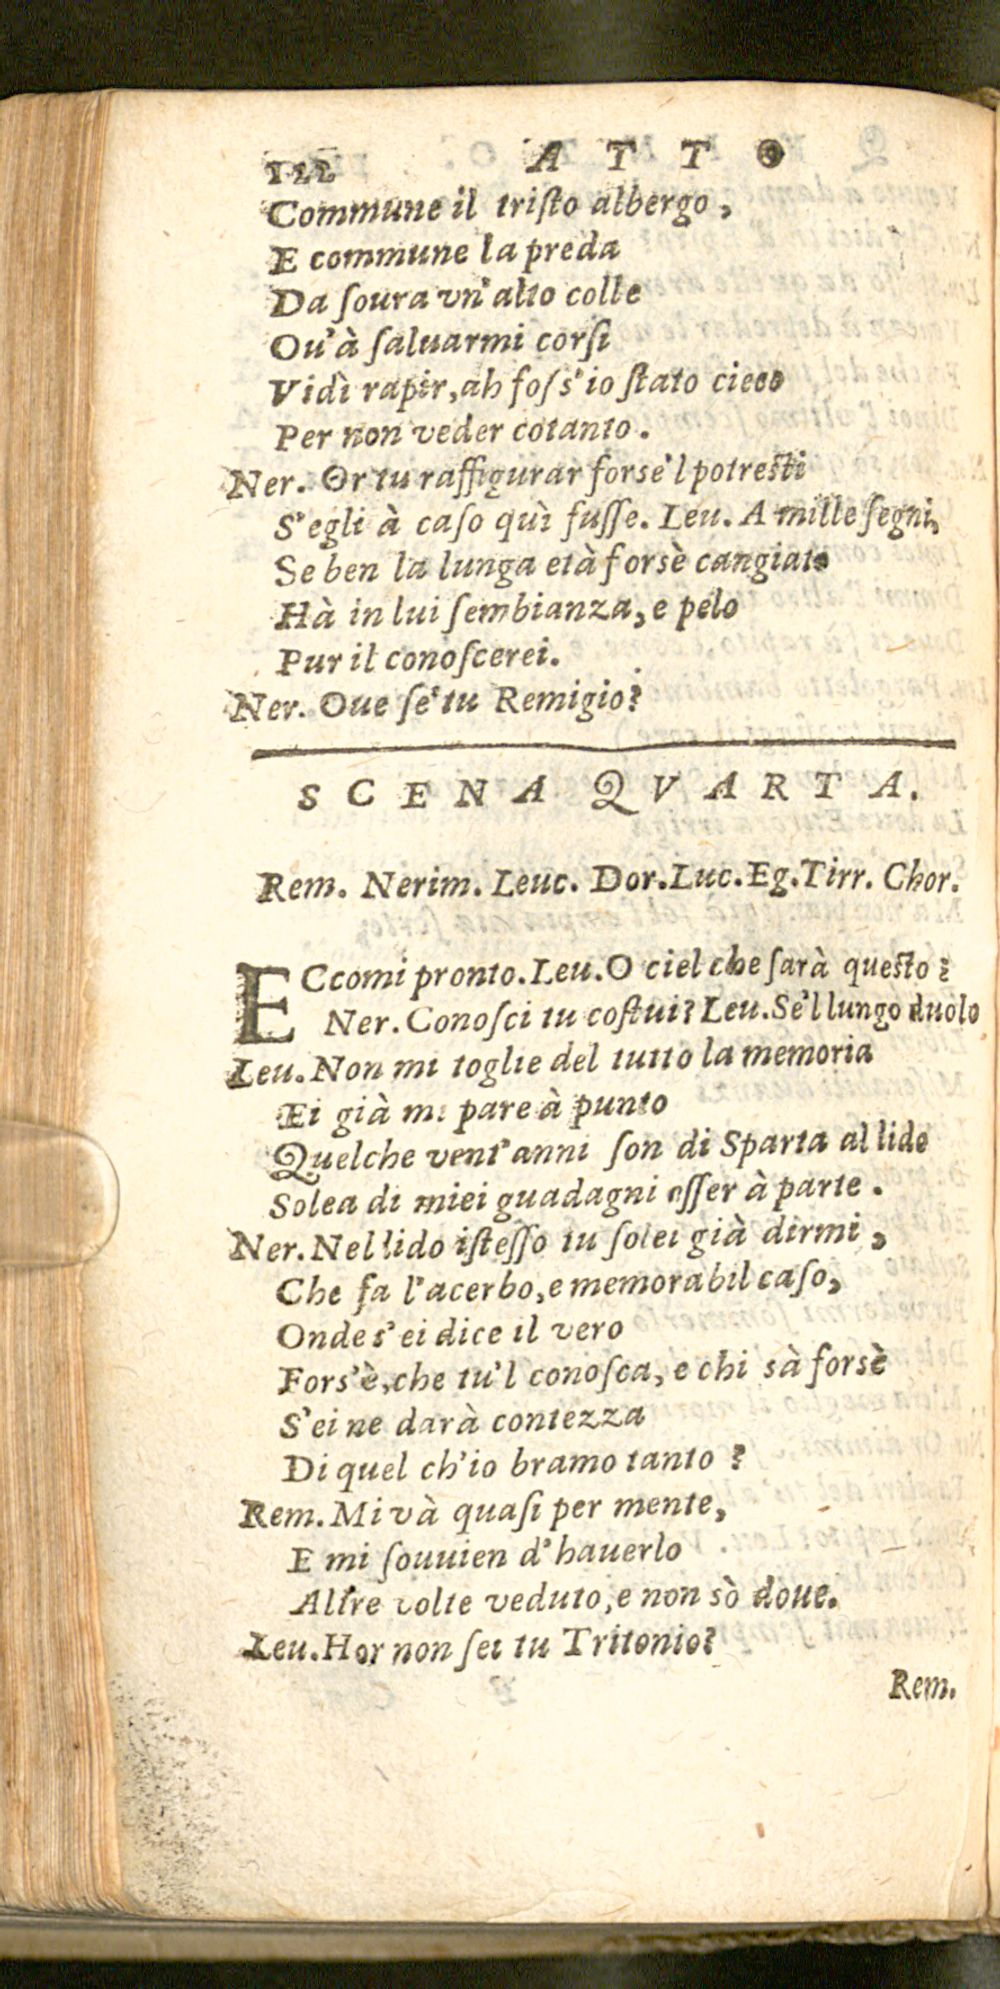 122 ATTO
Commune il tristo albergo,
E commune la preda
Da ſoura vn'alto colle
Ou'à ſaluarmi corſi
Vidì rapir, ah foſs'io ſtato cieco
Per non veder cotanto.
Ner. Or tu raffigurar forse'l potresti
S'egli à caſo quì fuſſe. Leu. A mille ſegni,
Se ben la lunga età forsè cangiato
Hà in lui ſembianza, e pelo
Pur il conoſcerei.
Ner. Oue ſe' tu Remigio?
SCENA QVARTA.
Rem. Nerim. Leuc. Dor. Luc. Eg. Tirr. Chor.
ECcomi pronto. Leu. O ciel che ſarà questo?
Ner. Conoſci tu coſtui? Leu. Se'l lungo duolo
Leu. Non mi toglie del tutto la memoria
Ei già mi pare à punto
Quelche vent'anni ſon di Sparta al lido
Solea di miei guadagni eſſer à parte.
Ner. Nel lido iſteſſo tu ſolei già dirmi,
Che fa l'acerbo, e memorabil caſo,
Onde s'ei dice il vero
Fors'è, che tu'l conoſca, e chi sà forsè
S'ei ne darà contezza
Di quel ch'io bramo tanto?
Rem. Mi và quaſi per mente,
E mi ſouuien d'hauerlo
Altre volte veduto, e non sò doue.
Leu. Hor non ſei tu Tritonio?
Rem.